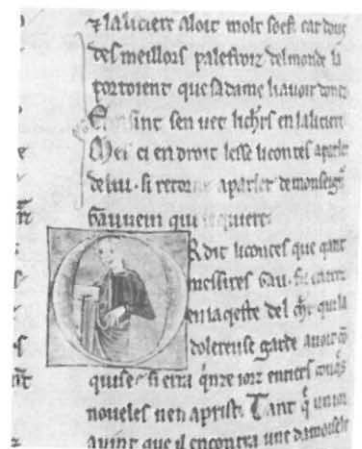 ⁊ la liciere aloit molt soef. car dous
des meillors palefroiz del monde la
portoient que sa dame li auoit
Et einsint sen uet lichrs en la liciere
Mes ci endroit lesse li contes aparler
de lui. si retorne aparler de monseign
Gauuein qui
OR dit li contes que qant
messires Gau. fu entrez
en la qeste del chr qui la
dolereuse garde auoit con
quise. si erra qinze iorz entiers conqs
noueles nen aprist. Tant q un ior
auint que il encontra une damoisele